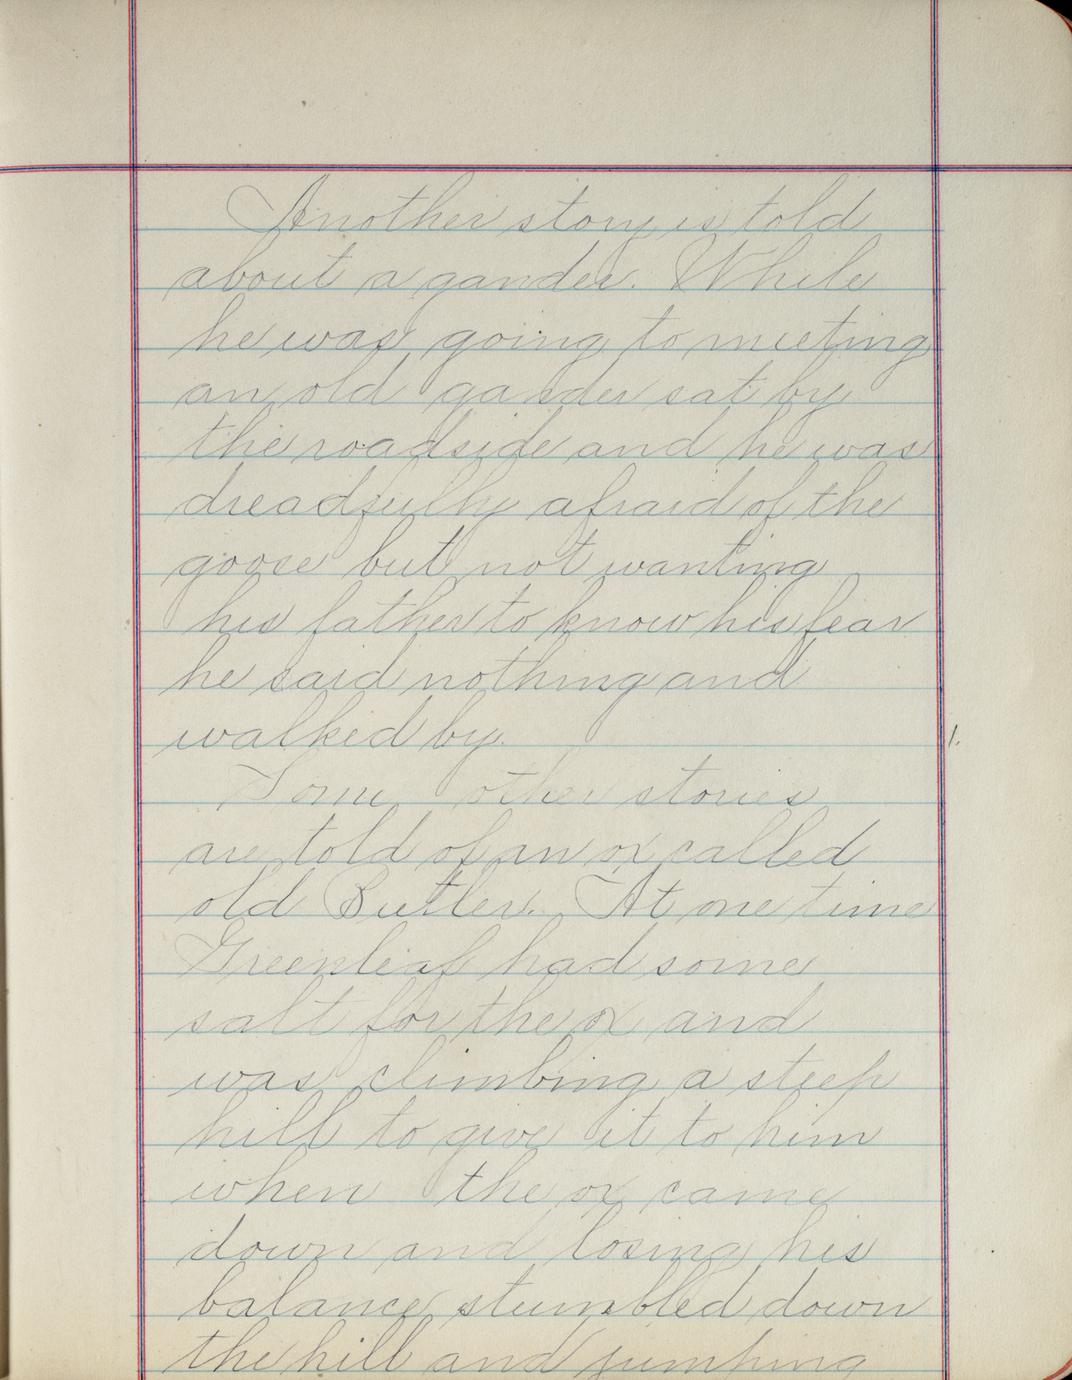 Another story is told
about a gander. While
he was going to meeting
an old gander sat by
the roadside and he was
dreadfully afraid of the
goose but not wanting
his father to know his fear
he said nothing and
walked by.
1.
Some other stories
are told of an ox called
old Butler. At one time
Greenleaf had some
salt for the ox and
was climbing a steep
hill to give it to him
when the ox came
down and losing his
balance, stumbled down
the hill and jumping